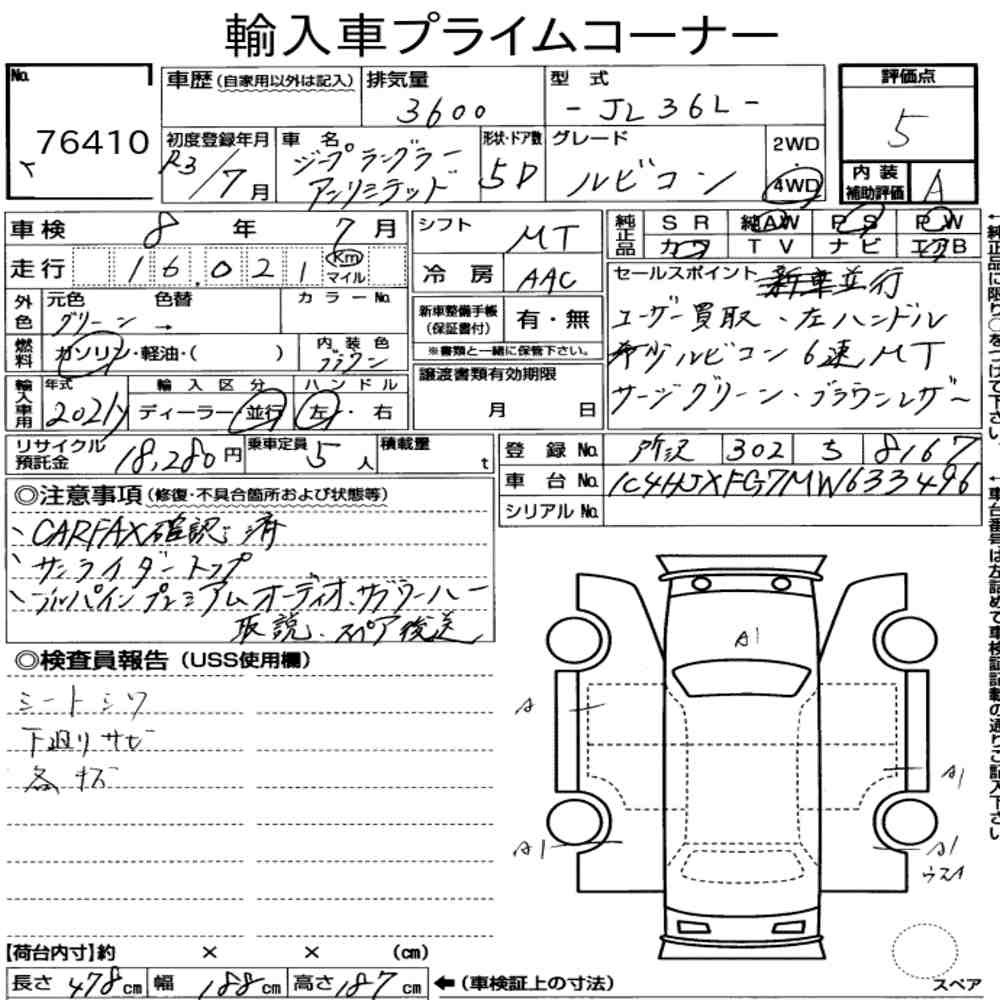 輸入車プライムコーナー
No.
76410
車歴(自家用以外は記入)
排気量
3600
型式
-JL36L-
評価点
5
初度登録年月
R3/7月
車名
ジープラングラー
アンリミテッド
形状・ドア数
5D
グレード
ルビコン
2WD
・
4WD
内装
補助評価
A
車検 8年 7月
シフト
MT
純正品
SR 純AW PS PW
カワ TV ナビ エアB
走行 16,021 Km
マイル
冷房 AAC
セールスポイント 新車並行
ユーザー買取、左ハンドル
希少ルビコン6速MT
サージグリーン・ブラウンレザー
外色
元色 色替 カラーNo.
グリーン →
新車整備手帳
(保証書付)
有・無
※書類と一緒に保管下さい。
燃料
ガソリン・軽油・( )
内装色
ブラウン
輸入車用
年式
2021y
輸入区分
ディーラー・並行
ハンドル
左・右
譲渡書類有効期限
月 日
リサイクル
預託金
18,280円
乗車定員
5人
積載量
t
登録No. 所沢 302 ち 8167
車台No. 1C4HJXFG7MW633496
シリアルNo.
◎注意事項(修復・不具合箇所および状態等)
、CARFAX確認済
、サンライダートップ
、アルパインプレミアムオーディオ、サブウーハー
取説、スペア後送
◎検査員報告(USS使用欄)
シートシワ
下廻りサビ
各キズ
A1
A
A1
A1
A1
ウスイ
【荷台内寸】約 × × (cm)
長さ 478cm 幅 188cm 高さ 187cm ←(車検証上の寸法)
スペア
←純正品に限り○をつけて下さい。
←車台番号は左詰めで車検証記載の通りご記入下さい